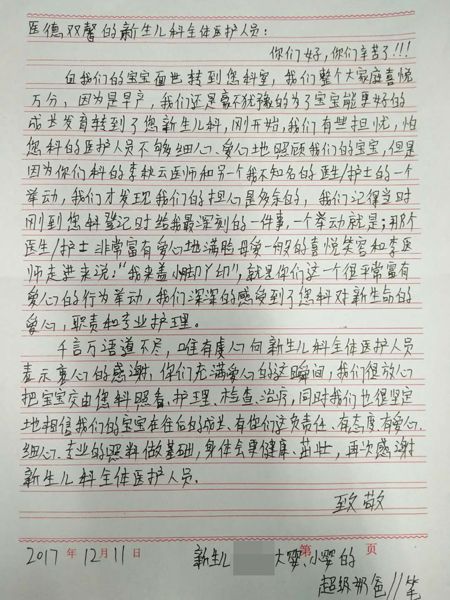 医德双馨的新生儿科全体医护人员：
你们好，你们辛苦了!!!
自我们的宝宝面世转到您科室，我们整个大家庭喜悦
万分，因为是早产，我们还是毫不犹豫的为了宝宝能更好的
成长发育转到了您新生儿科，刚开始，我们有些担忧，怕
您科的医护人员不够细心、爱心地照顾我们的宝宝，但是
因为你们科的李秋云医师和另一个我不知名的医生/护士的一个
举动，我们才发现我们的担心是多余的，我们记得当时
刚到您科登记时给我最深刻的一件事，一个举动就是：用那个
医生/护士非常富有爱心地满脸母爱一般的喜悦笑容和李医
师走进来说："我来盖小脚丫印"，就是你们这一个很平常富有
爱心的行为举动，我们深深的感受到了您科对新生命的
爱心，职责和专业护理。
千言万语道不尽，唯有虔心向新生儿科全体医护人员
表示衷心的感谢，你们充满爱心的这瞬间，我们很放心
把宝宝交由您科照看、护理、检查、治疗，同时我们也很坚定
地相信我们的宝宝在往后的成长，有你们这负责任、有态度、有爱心、
细心、专业的照料做基础，身体会更健康、茁壮，再次感谢
新生儿科全体医护人员。
致敬
2017年12月11日 新生儿 大婴、小婴的 第 页
超级奶爸//笔